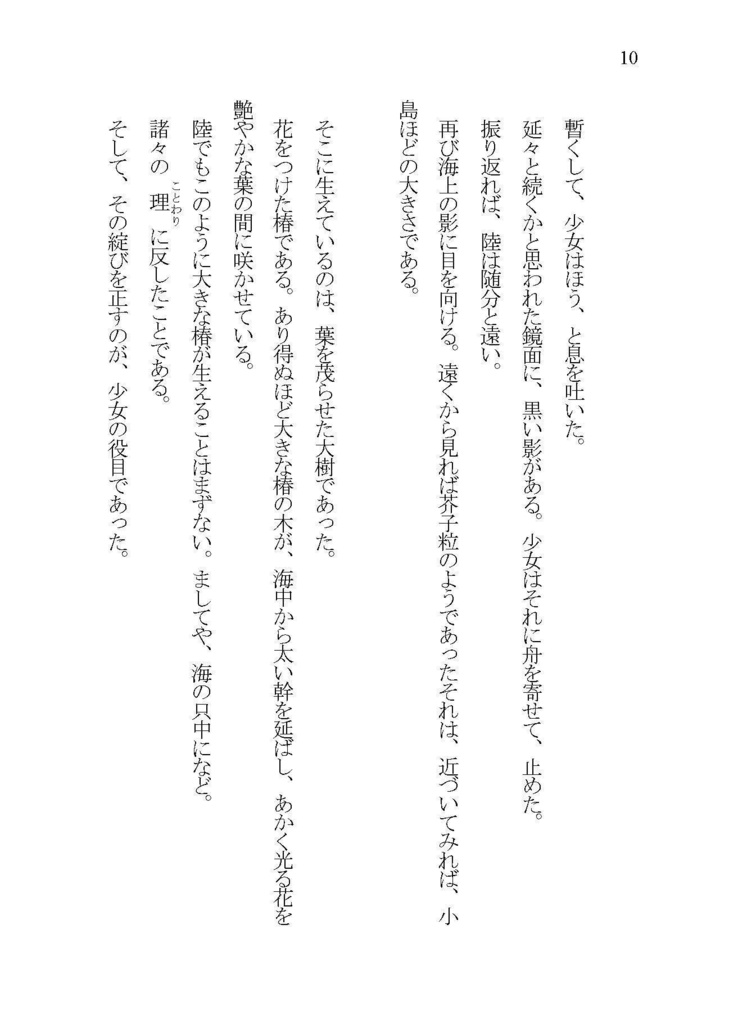 10
暫くして、少女はほう、と息を吐いた。
延々と続くかと思われた鏡面に、黒い影がある。少女はそれに舟を寄せて、止めた。
振り返れば、陸は随分と遠い。
再び海上の影に目を向ける。遠くから見れば芥子粒のようであったそれは、近づいてみれば、小
島ほどの大きさである。
そこに生えているのは、葉を茂らせた大樹であった。
花をつけた椿である。あり得ぬほど大きな椿の木が、海中から太い幹を延ばし、あかく光る花を
艶やかな葉の間に咲かせている。
陸でもこのように大きな椿が生えることはまずない。ましてや、海の只中になど。
諸々の理ことわりに反したことである。
そして、その綻びを正すのが、少女の役目であった。